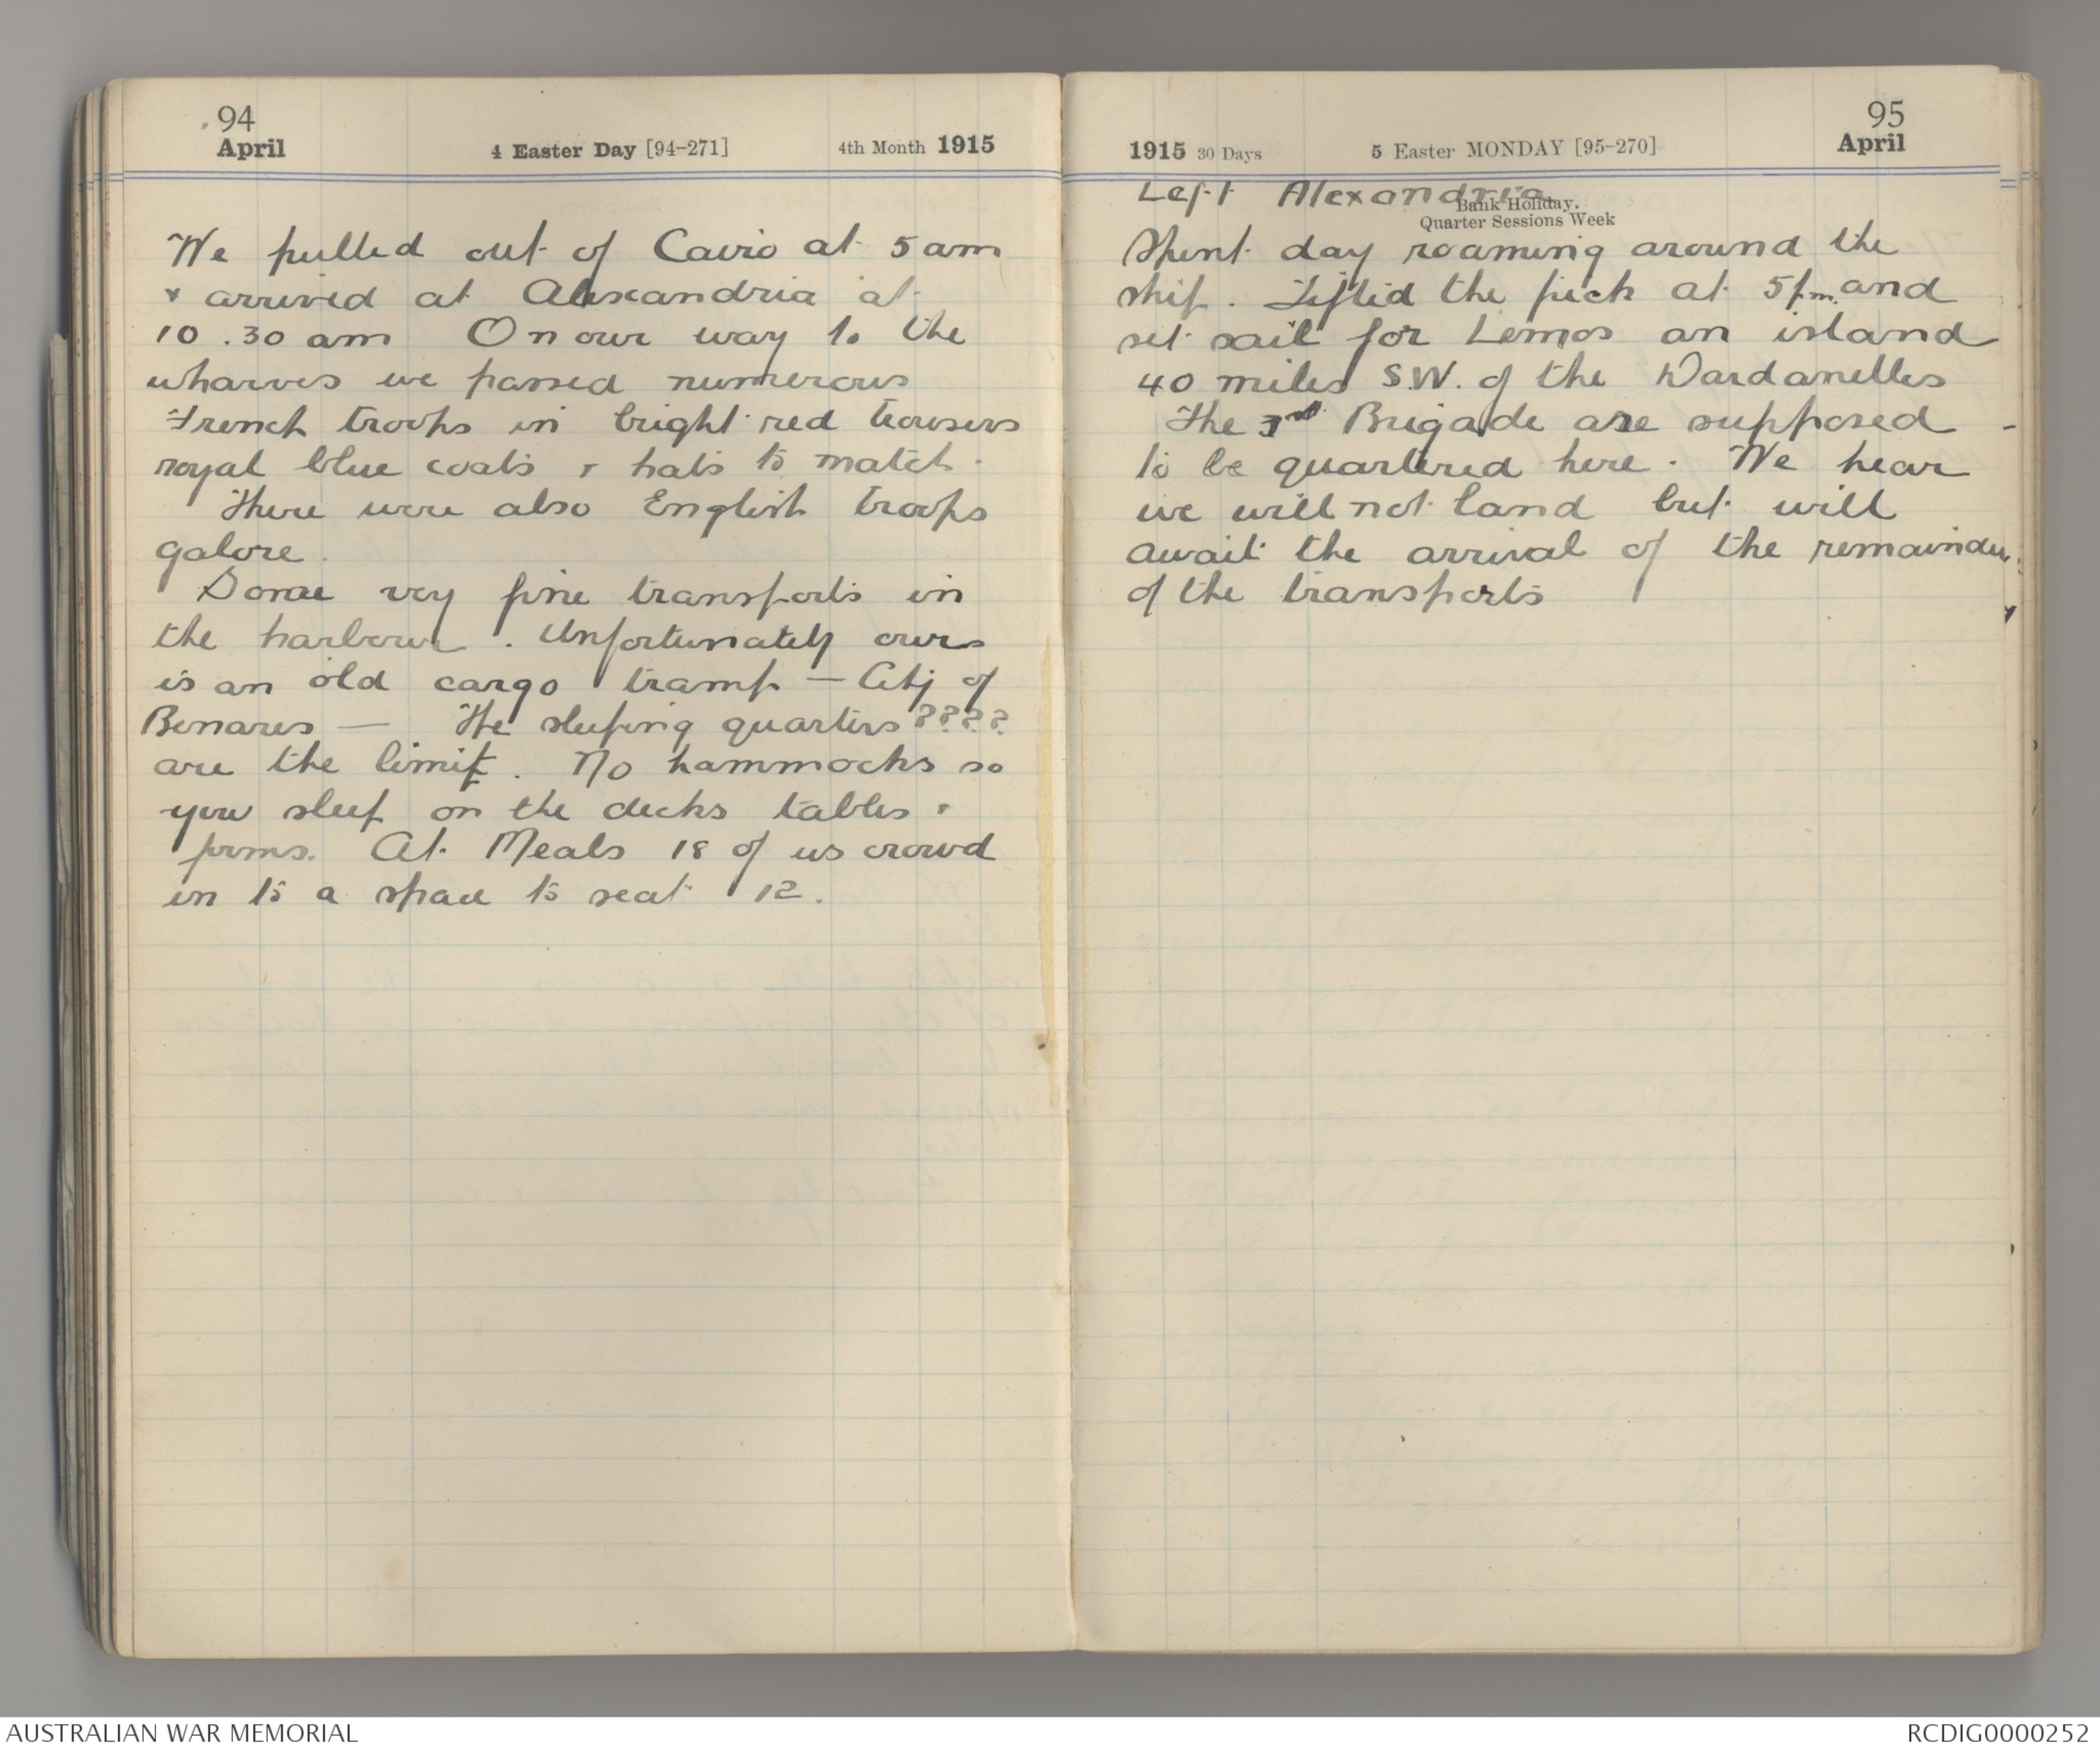 94
April
4 Easter Day [94-271]
4th Month 1915
We pulled out of Cairo at 5 am
& arrived at Alexandria at
10.30 am On our way to the
wharves we passed numerous
French troops in bright red trousers
royal blue coats & hats to match.
There were also English troops
galore.
Some very fine transports in
the harbour. Unfortunately ours
is an old cargo tramp — City of
Benares — The sleeping quarters ????
are the limit. No hammocks so
you sleep on the decks tables &
forms. At Meals 18 of us crowd
in to a space to seat 12.
95
1915 30 Days
5 Easter MONDAY [95-270]
April
Left Alexandria
Bank Holiday.
Quarter Sessions Week
Spent day roaming around the
ship. Lifted the pick at 5 p.m. and
set sail for Lemos an island
40 miles S.W. of the Dardanelles
The 3rd Brigade are supposed
to be quartered here. We hear
we will not land but will
await the arrival of the remainder
of the transports
AUSTRALIAN WAR MEMORIAL
RCDIG0000252